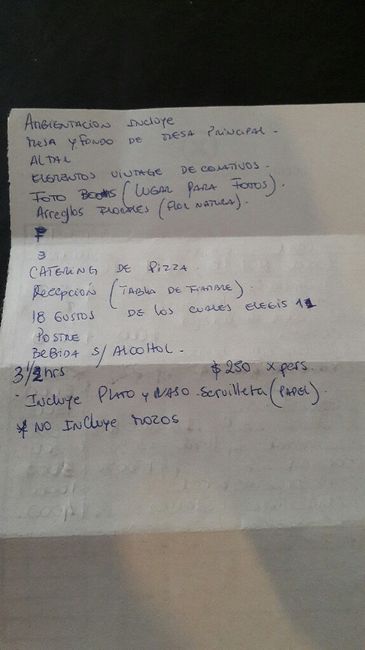 AMBIENTACION INCLUYE
MESA Y FONDO DE MESA PRINCIPAL.
ALTAR
ELEMENTOS VINTAGE DECORATIVOS.
FOTO BOOKS (LUGAR PARA FOTOS).
Arreglos FLORALES (FLOR NATURAL).
F
3
CATERING DE PIZZA.
Recepción (TABLA DE FIAMBRE).
18 GUSTOS DE LOS CUALES ELEGIS 11
POSTRE
BEBIDA S/ ALCOHOL.
3 1/2 hrs $ 250 x pers.
Incluye PLATO Y VASO. Servilleta (PAPEL).
* NO INCLUYE MOZOS